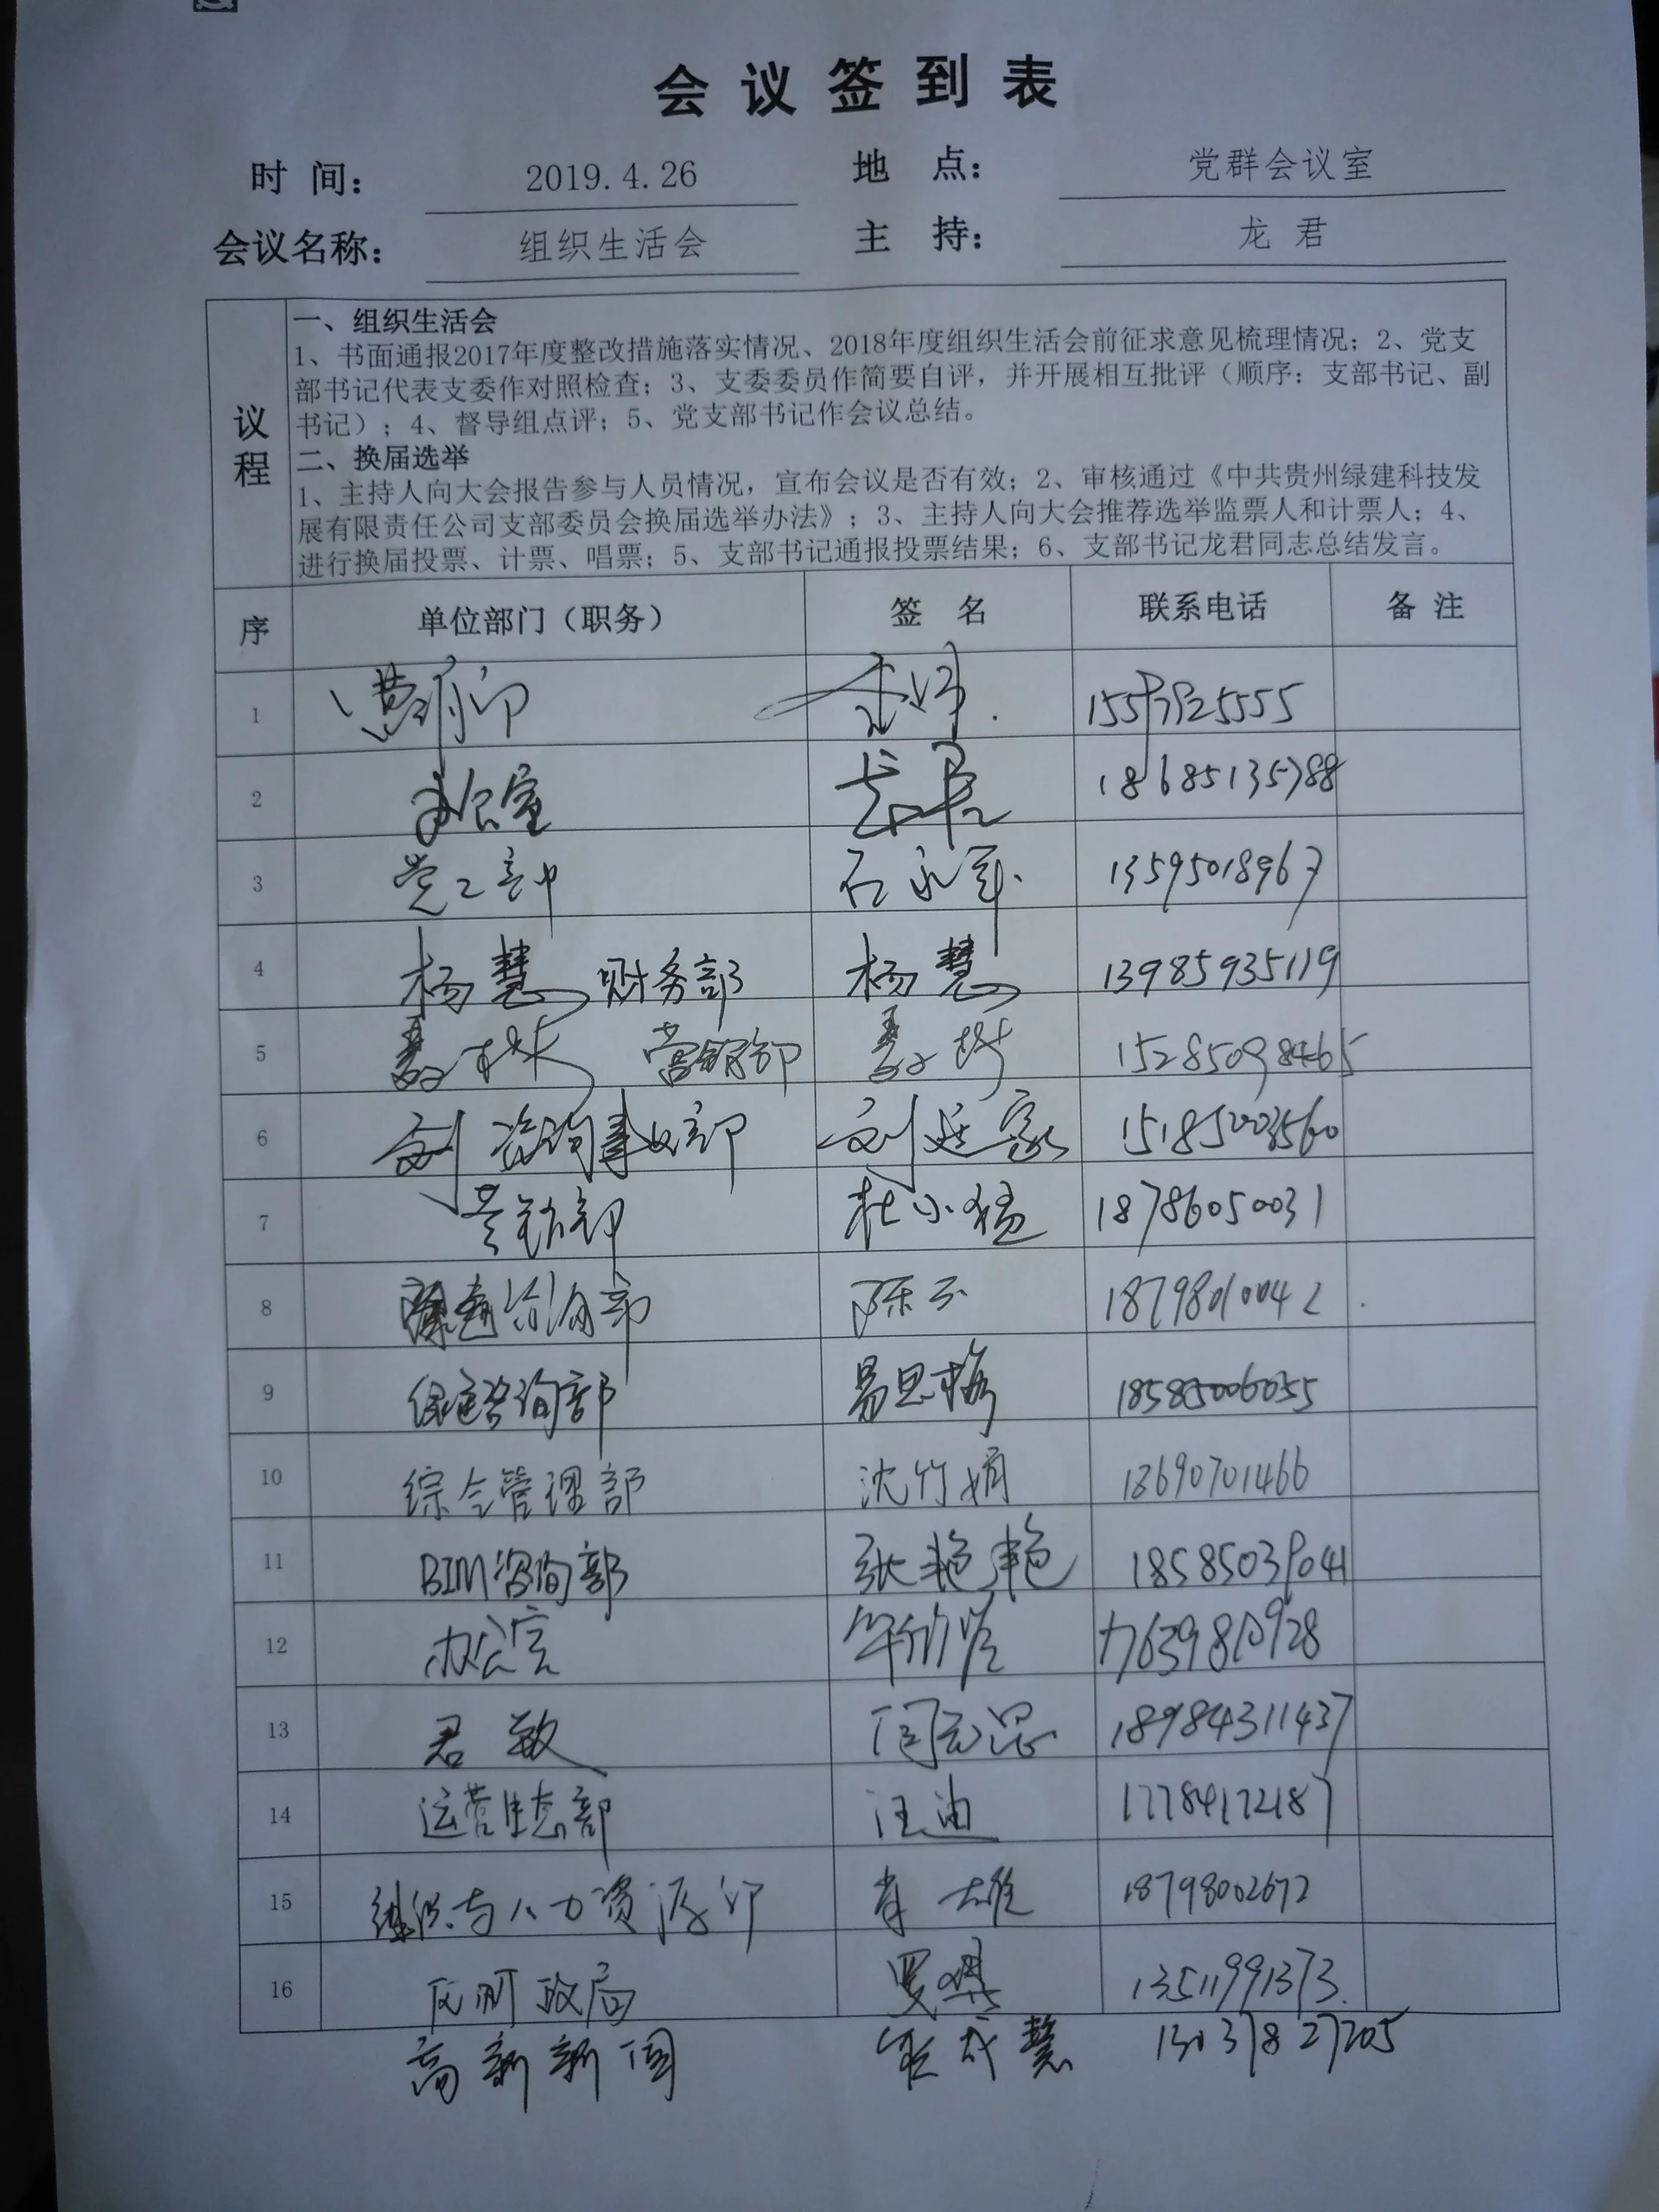 会议签到表
时间： 2019.4.26 地点： 党群会议室
会议名称： 组织生活会 主持： 龙君
议程
一、组织生活会
1、书面通报2017年度整改措施落实情况、2018年度组织生活会前征求意见梳理情况；2、党支
部书记代表支委作对照检查；3、支委委员作简要自评，并开展相互批评（顺序：支部书记、副
书记）；4、督导组点评；5、党支部书记作会议总结。
二、换届选举
1、主持人向大会报告参与人员情况，宣布会议是否有效；2、审核通过《中共贵州绿建科技发
展有限责任公司支部委员会换届选举办法》；3、主持人向大会推荐选举监票人和计票人；4、
进行换届投票、计票、唱票；5、支部书记通报投票结果；6、支部书记龙君同志总结发言。
序 单位部门（职务） 签名 联系电话 备注
1
2 办公室 龙君 18685135788
3 党工部 石永军 13595018967
4 杨慧 财务部 杨慧 13985935119
5 营销部 15285098465
6 刘 咨询事业部 刘廷家 15185003560
7 营销部 杜小杨 18786050031
8 咨询部 陈云 18798010042
9 绿建咨询部 易思梅 18585006055
10 综合管理部 沈竹娟 13690701466
11 BIM咨询部 张艳艳 18585039041
12 办公室
13 18984311437
14 运营生态部 汪迪 17784172187
15 组织与人力资源部 肖雄 18798002672
16 政局 罗 13511991373
高新新 成慧 13037827205